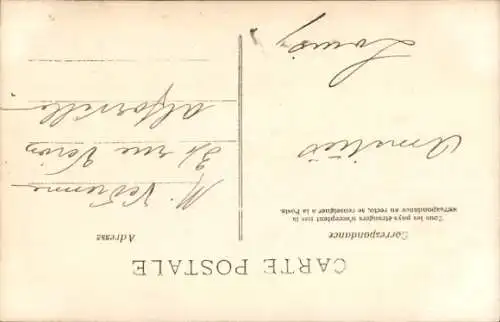 CARTE POSTALE
Correspondance
Tous les pays étrangers n'acceptent pas la
correspondance au recto, se renseigner à la Poste.
Amitiés
Adresse
M. Vedrenne
rue Véron
Alfortville